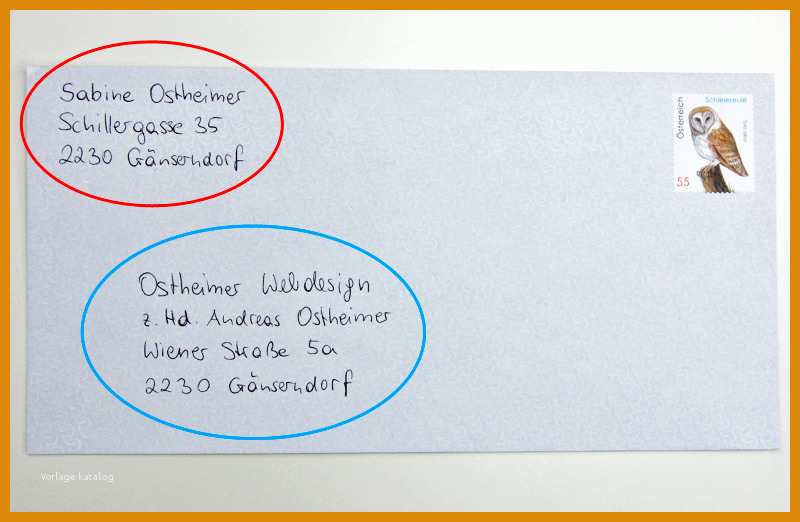 Sabine Ostheimer
Schillergasse 35
2230 Gänserndorf
Österreich
Schleiereule
55
Ostheimer Webdesign
z. Hd. Andreas Ostheimer
Wiener Straße 5a
2230 Gänserndorf
Vorlage katalog